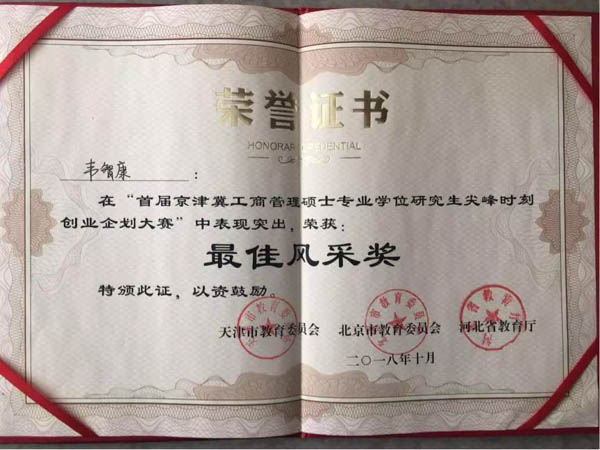 荣誉证书
HONORAR CREDENTIAL
韦智康：
在“首届京津冀工商管理硕士专业学位研究生尖峰时刻
创业企划大赛”中表现突出，荣获：
最佳风采奖
特颁此证，以资鼓励。
天津市教育委员会 北京市教育委员会 河北省教育厅
二〇一八年十月